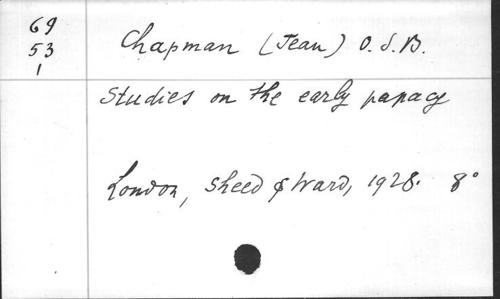 69
53
1
Chapman (Jean) O.S.B.
Studies on the early papacy
London, Sheed & Ward, 1928. 8°